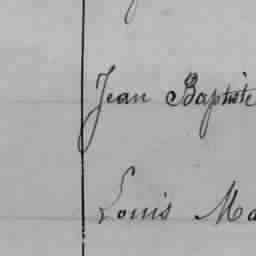 Jean Baptiste
Louis Ma